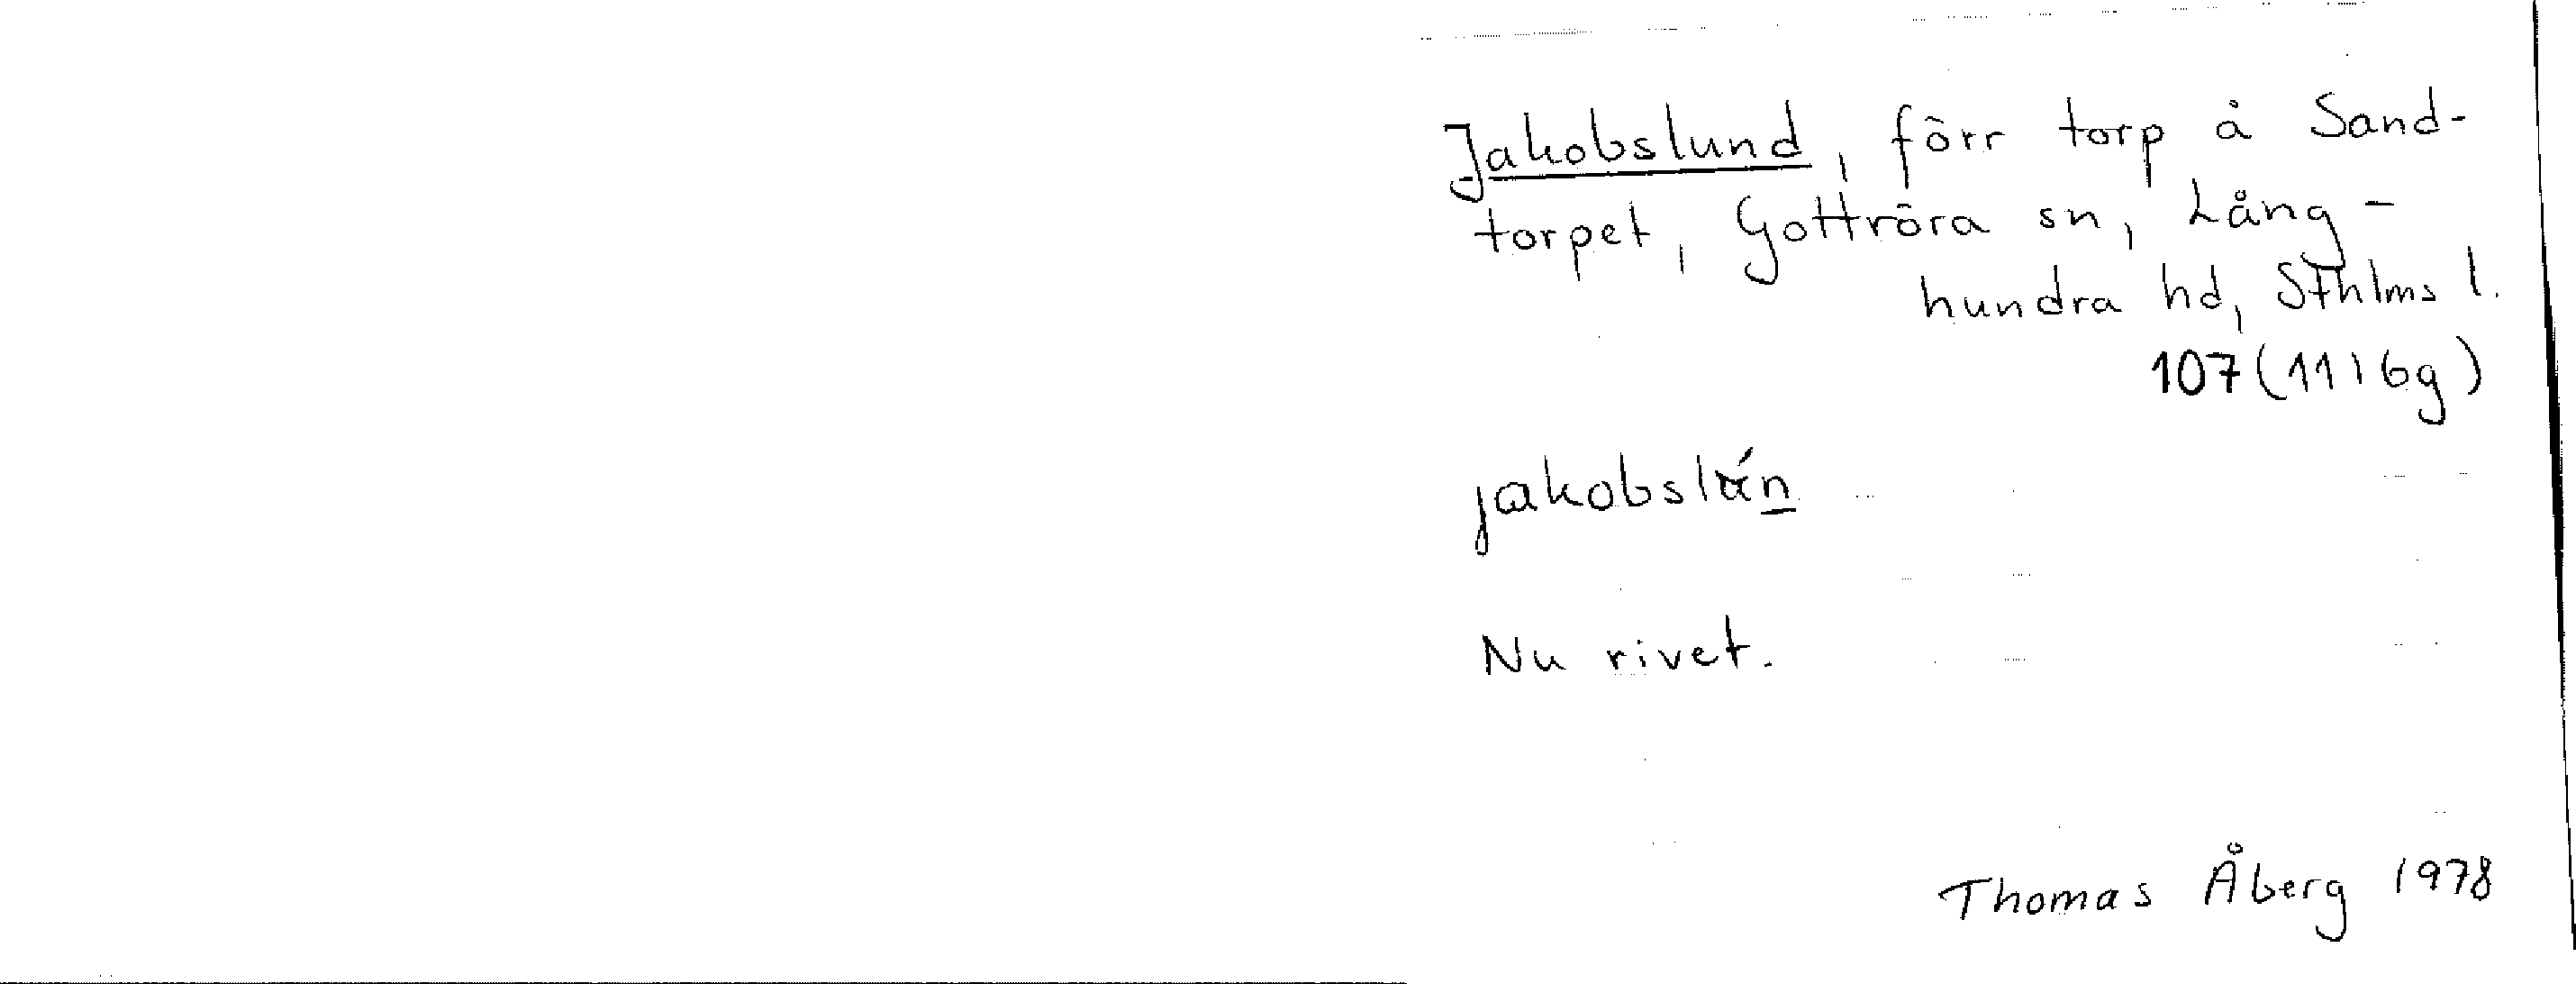 Jakobslund, förr torp å Sand-
torpet, Gottröra sn, Lång-
hundra hd, Sthlms l.
107 (11I6g)
Nu rivet.
Thomas Åberg 1978